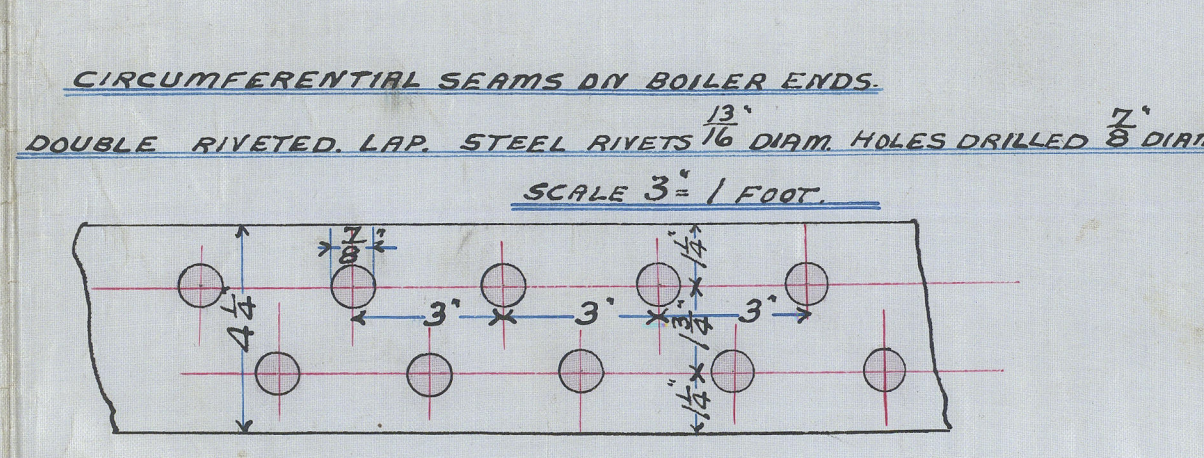 CIRCUMFERENTIAL SEAMS ON BOILER ENDS.
DOUBLE RIVETED. LAP. STEEL RIVETS 13/16" DIAM. HOLES DRILLED 7/8" DIAM
SCALE 3" = 1 FOOT.
7/8"
1 1/4"
4 1/4"
3"
3"
1 3/4"
3"
1 1/4"